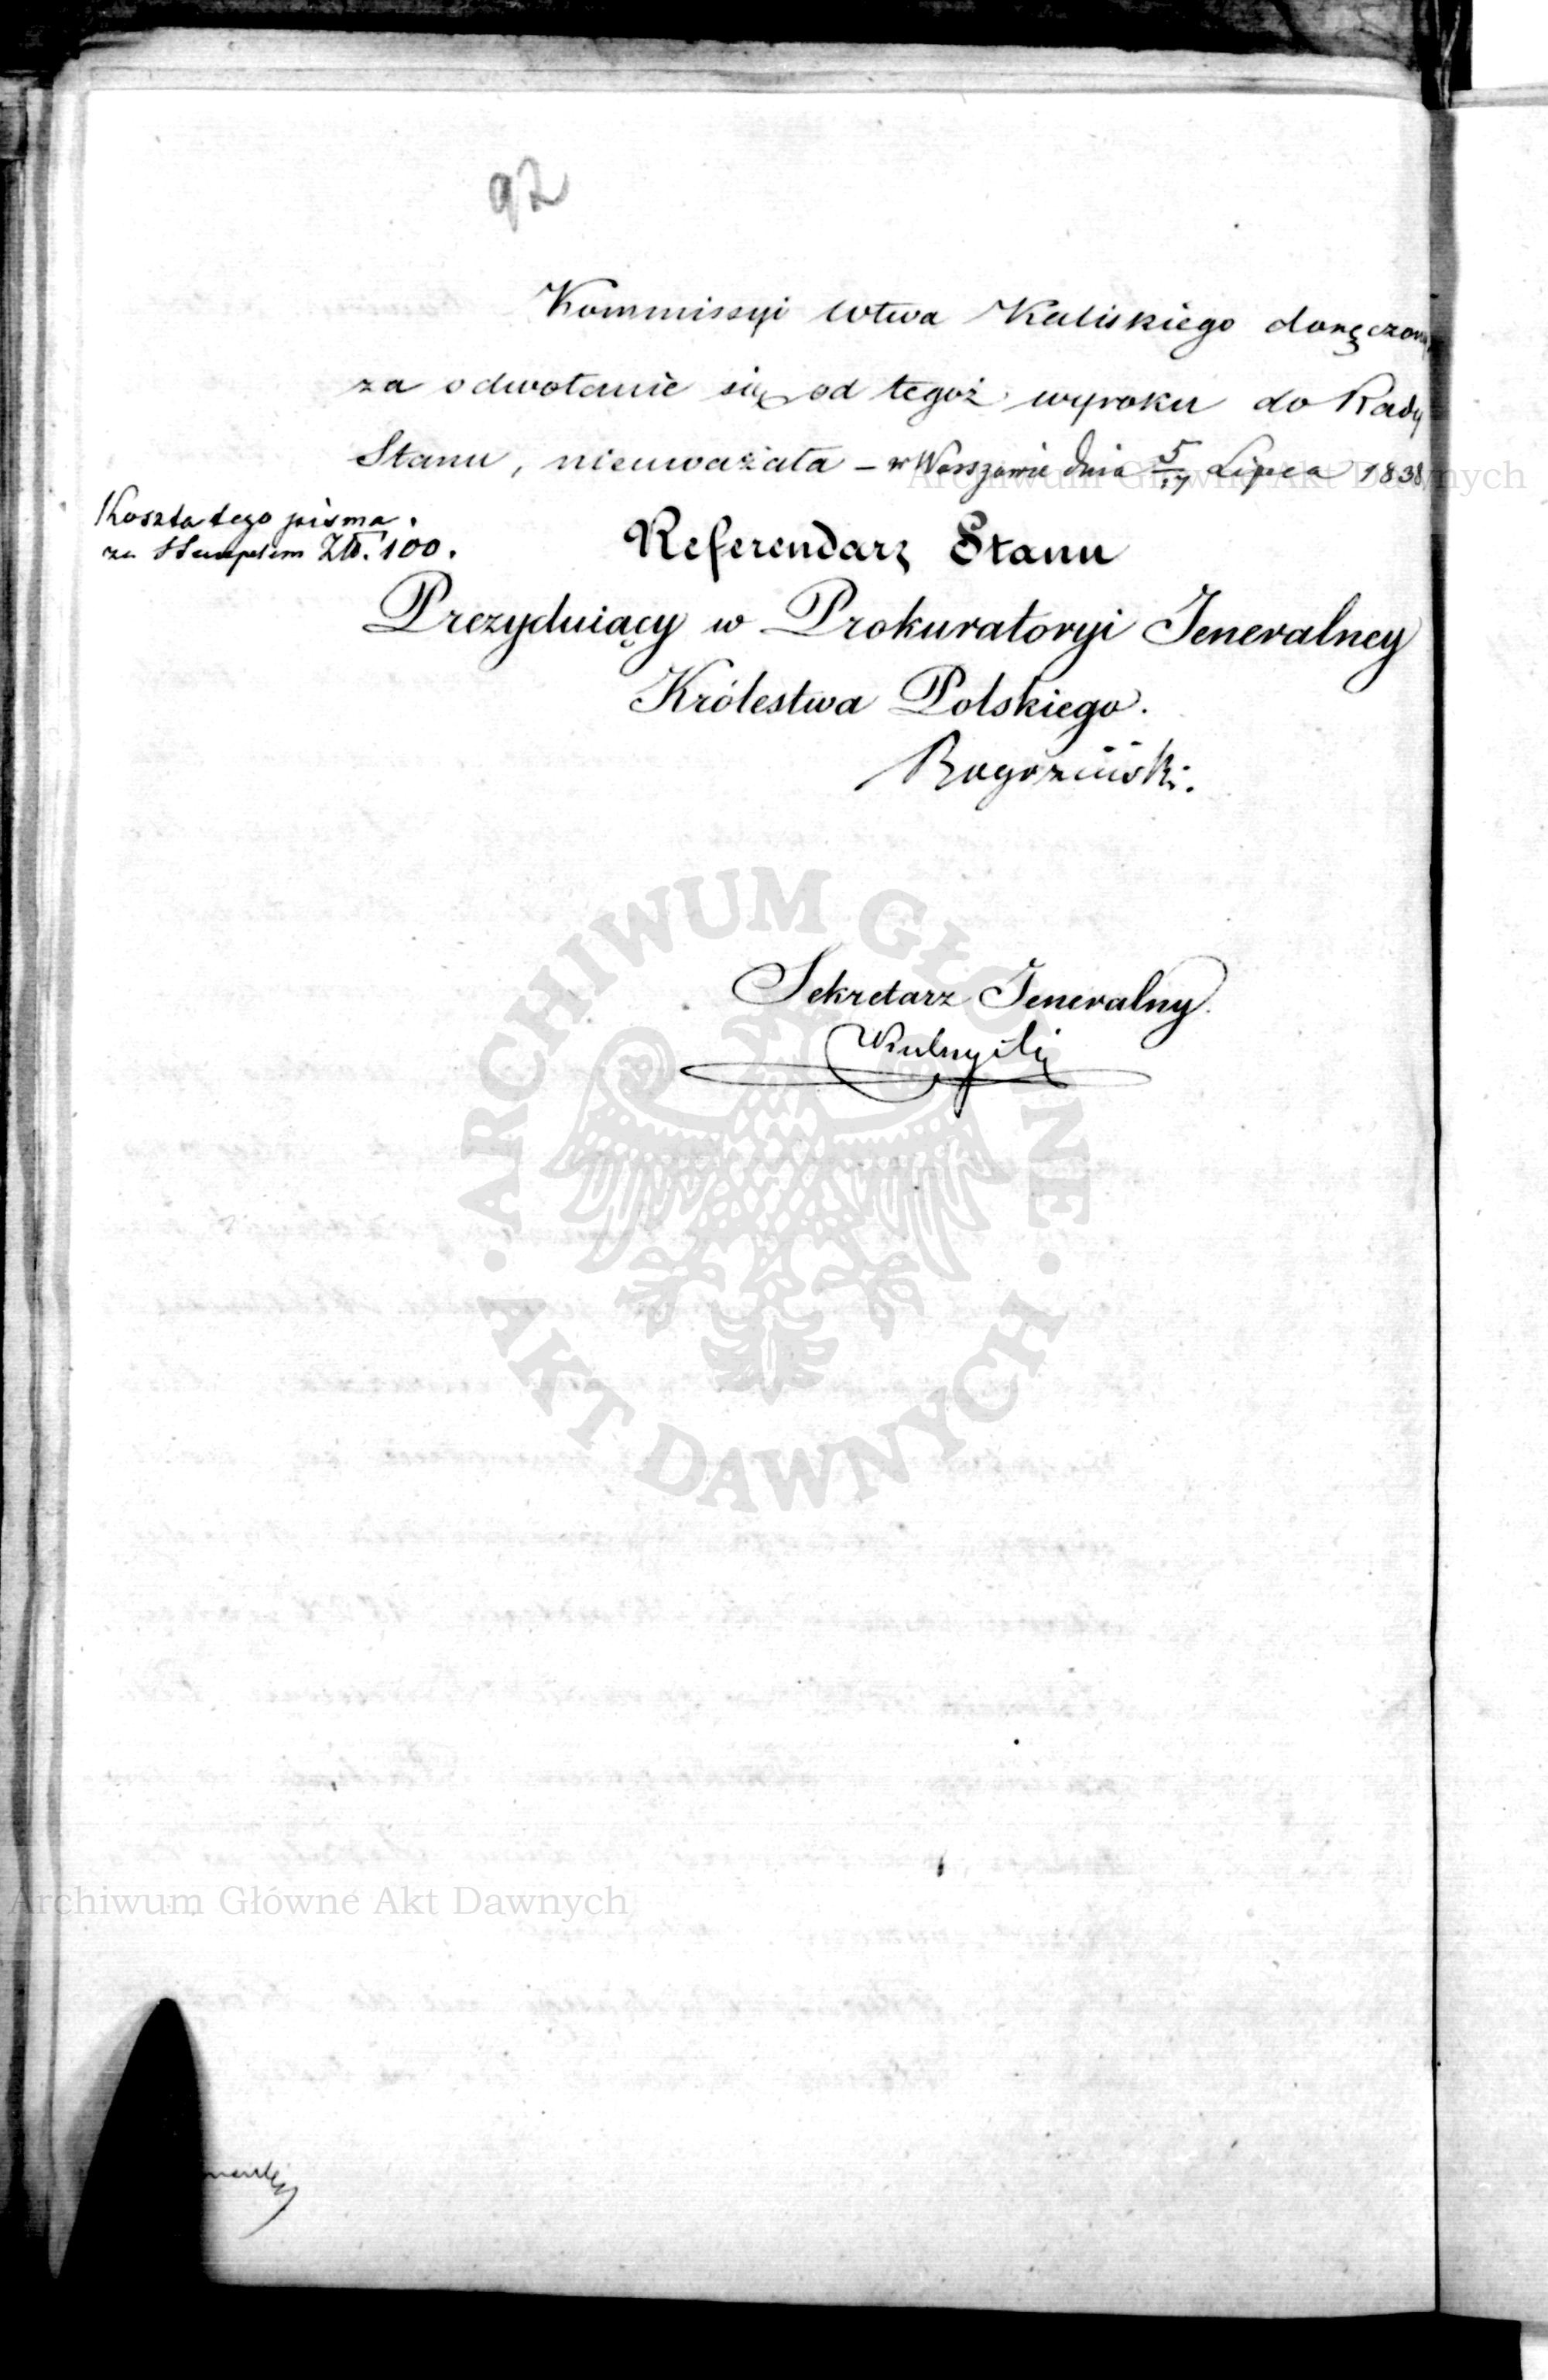 92
Kommissyi Wtwa Kaliskiego doręczony
za odwołanie się od tegoż wyroku do Rady
Stanu, nieuważała – w Warszawie dnia 5/17 Lipca 1838
Archiwum Główne Akt Dawnych
Koszta tego pisma.
za Stemplem Złl. 100.
Referendarz Stanu
Prezyduiący w Prokuratoryi Jeneralney
Królestwa Polskiego.
ARCHIWUM GŁÓWNE
Sekretarz Jeneralny.
AKT DAWNYCH
Archiwum Główne Akt Dawnych